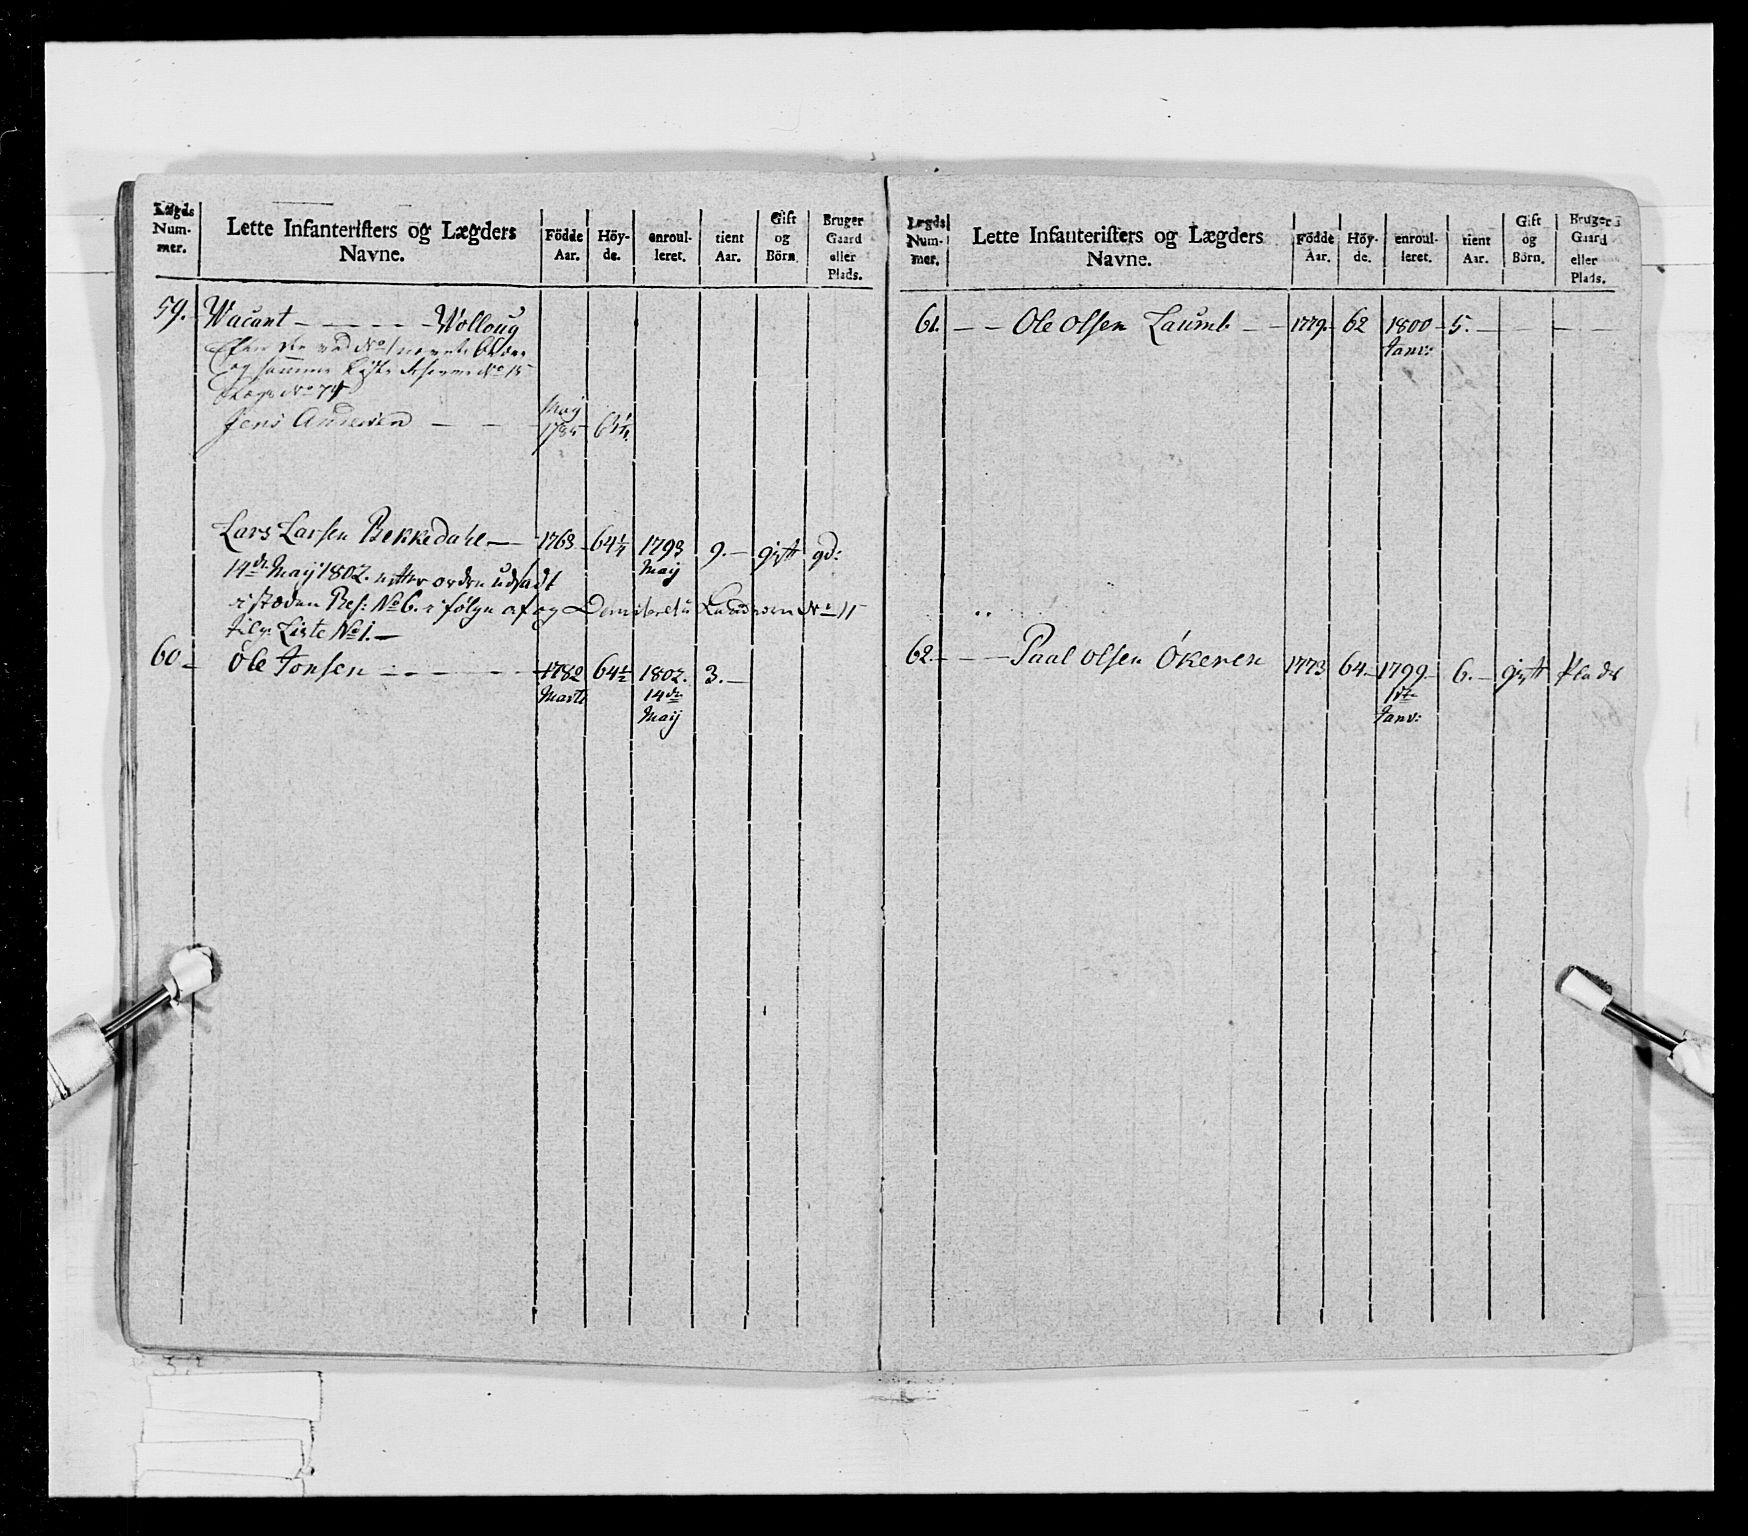 Lægds Num- mer.
Lette Infanteristers og Lægders Navne.
Födde Aar.
Höy- de.
enroul- leret.
tient Aar.
Gift og Börn.
Bruger Gaard eller Plads.
59. Wacant - - - - - Wolloug
No 15
No 74
Jens Andersen - - May 1785 61¼.
Lars Larsen Bekkedahl - - 1768 64¼ 1793 9. - gift gd:
Maij
14de Maij 1802. efter ordre udsadt
i stæden Res: No 6. i følge af og No 11
Liste No 1. -
60 - Ole Jonsen - - - - - 1782 64½ 1802. 3. -
Marti 14de
Maij
Lægds Num- mer.
Lette Infanteristers og Lægders Navne.
Födde Aar.
Höy- de.
enroul- leret.
tient Aar.
Gift og Börn.
Bruger Gaard eller Plads.
61. - - Ole Olsen Laumb - - 1779. 62 1800 - 5. - - -
Janv:
62. - - - Paal Olsen Økeren 1773 64 - 1799 - 6. - gift Plads
1ste
Janv: